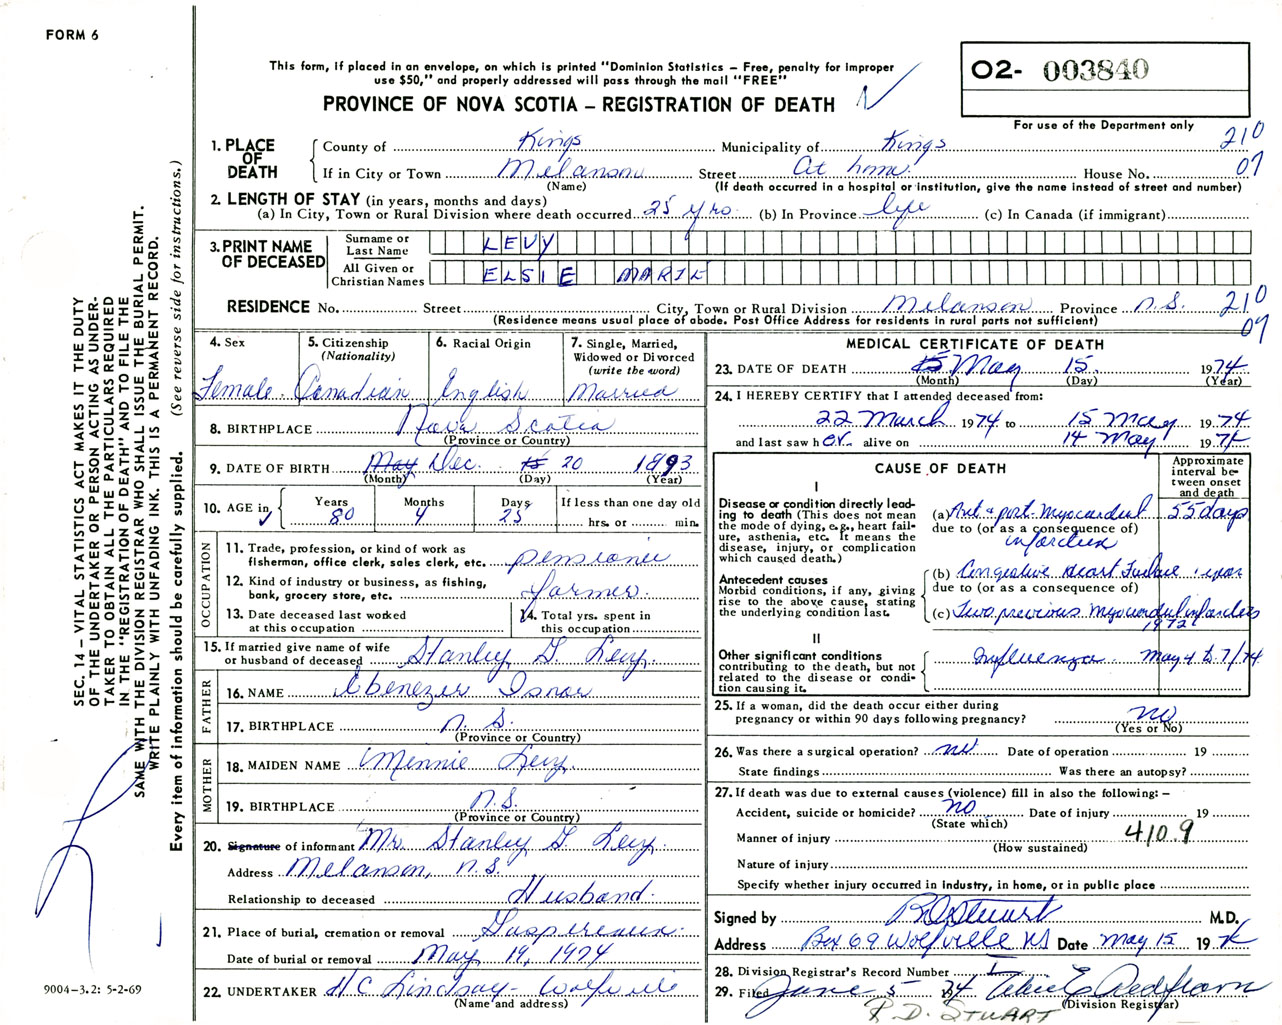 FORM 6
This form, if placed in an envelope, on which is printed "Dominion Statistics – Free, penalty for improper
use $50," and properly addressed will pass through the mail "FREE"
PROVINCE OF NOVA SCOTIA – REGISTRATION OF DEATH
O2- 003840
For use of the Department only
210
07
1. PLACE OF DEATH
County of Kings Municipality of Kings
If in City or Town Melanson Street At home. House No.
(Name) (If death occurred in a hospital or institution, give the name instead of street and number)
2. LENGTH OF STAY (in years, months and days)
(a) In City, Town or Rural Division where death occurred 25 yrs. (b) In Province life (c) In Canada (if immigrant)
3. PRINT NAME OF DECEASED
Surname or Last Name LEVY
All Given or Christian Names ELSIE MARIE
RESIDENCE No. Street City, Town or Rural Division Melanson Province N.S.
(Residence means usual place of abode. Post Office Address for residents in rural parts not sufficient)
210
07
4. Sex Female.
5. Citizenship (Nationality) Canadian
6. Racial Origin English
7. Single, Married, Widowed or Divorced (write the word) Married
8. BIRTHPLACE Nova Scotia
(Province or Country)
9. DATE OF BIRTH May Dec. 15 20 1893
(Month) (Day) (Year)
10. AGE in Years 80 Months 4 Days 25 If less than one day old hrs. or min.
OCCUPATION
11. Trade, profession, or kind of work as
fisherman, office clerk, sales clerk, etc. pensioner
12. Kind of industry or business, as fishing,
bank, grocery store, etc. farmer.
13. Date deceased last worked
at this occupation
14. Total yrs. spent in
this occupation
15. If married give name of wife
or husband of deceased Stanley G. Levy.
FATHER
16. NAME Ebenezer Isnor
17. BIRTHPLACE N.S.
(Province or Country)
MOTHER
18. MAIDEN NAME Mennie Levy.
19. BIRTHPLACE N.S.
(Province or Country)
20. Signature of informant Mr. Stanley G. Levy.
Address Melanson, N.S.
Relationship to deceased Husband.
21. Place of burial, cremation or removal Gaspereaux.
Date of burial or removal May 19, 1974
22. UNDERTAKER H C Lindsay - Wolfville
(Name and address)
MEDICAL CERTIFICATE OF DEATH
23. DATE OF DEATH 15 May 15. 1974
(Month) (Day) (Year)
24. I HEREBY CERTIFY that I attended deceased from:
22 March 1974 to 15 May 1974
and last saw her alive on 14 May 1974
CAUSE OF DEATH
Approximate interval between onset and death
I
Disease or condition directly lead-
ing to death (This does not mean
the mode of dying, e.g., heart fail-
ure, asthenia, etc. It means the
disease, injury, or complication
which caused death.)
(a) Ant. & post. Myocardial 55 days
due to (or as a consequence of)
infarction
Antecedent causes
Morbid conditions, if any, giving
rise to the above cause, stating
the underlying condition last.
(b) Congestive Heart Failure
due to (or as a consequence of)
(c) Two previous Myocardial infarcts
1972
II
Other significant conditions
contributing to the death, but not
related to the disease or condi-
tion causing it.
Influenza May 4 to 7/74
25. If a woman, did the death occur either during
pregnancy or within 90 days following pregnancy? no
(Yes or No)
26. Was there a surgical operation? no Date of operation 19
State findings Was there an autopsy?
27. If death was due to external causes (violence) fill in also the following: –
Accident, suicide or homicide? no Date of injury 19
(State which)
Manner of injury 410.9
(How sustained)
Nature of injury
Specify whether injury occurred in industry, in home, or in public place
Signed by R D Stuart M.D.
Address Box 69 Wolfville NS Date May 15 1974
28. Division Registrar's Record Number
29. Filed June 5 1974
(Division Registrar)
R. D. STUART
SEC. 14 – VITAL STATISTICS ACT MAKES IT THE DUTY
OF THE UNDERTAKER OR PERSON ACTING AS UNDER-
TAKER TO OBTAIN ALL THE PARTICULARS REQUIRED
IN THE "REGISTRATION OF DEATH" AND TO FILE THE
SAME WITH THE DIVISION REGISTRAR WHO SHALL ISSUE THE BURIAL PERMIT.
WRITE PLAINLY WITH UNFADING INK. THIS IS A PERMANENT RECORD.
Every item of information should be carefully supplied. (See reverse side for instructions.)
9004-3.2: 5-2-69